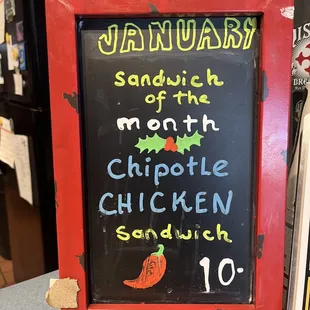 JANUARY
Sandwich
of the
month
Chipotle
CHICKEN
Sandwich
10-